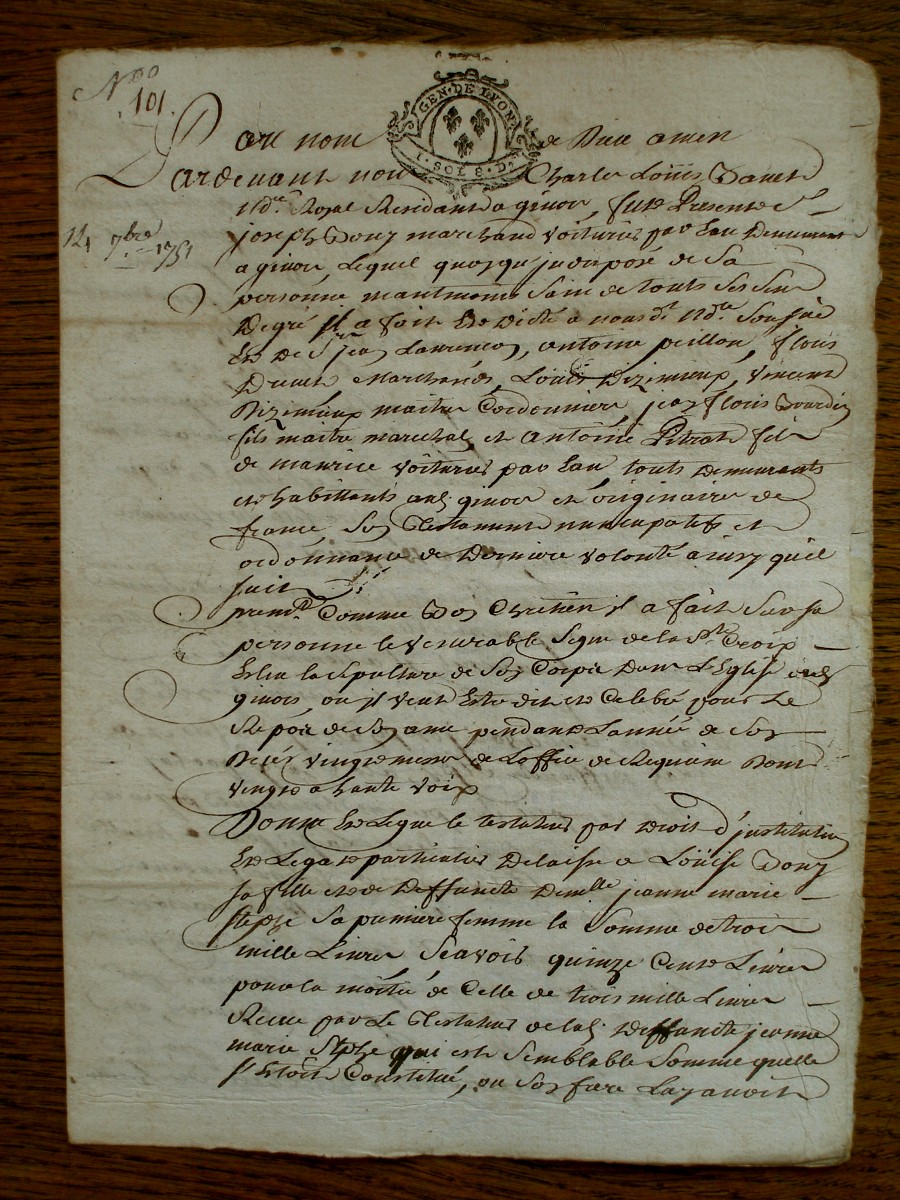 N.° 101.
GEN. DE LYON
1. SOLS. D.
Au nom de Dieu amen
Pardevant nous Charles Loüis
N.re Royal Residant a givors, fut Present S.r
joseph Bony marchand voiturier par Eau Demeurant
12 7bre 1751
a givors, Lequel quoyqu'judisposé de Sa
personne maintmoins Sain de touts Ses Sens
Degré Jl a fait Et Dicté a nousd.t N.re Soussigné
Et De S.r jean Laurençon, antoine peillon, fleuris
Marchands, Loüis Dizimieux, Vincent
Dizimieux maitres Cordonniers, jean fleuris Bourdin
fils maitre marechal, et antoine Pitrat fils
de maurice voiturier par Eau, touts Demeurants
et habittants aud. givors et originaires de
france Son Testament nuncupatif et
ordonnance de Derniere volonté ainsy qu'il
Suit
prem.t Comme Bon Chretien jl a fait Sur Sa
personne le venerable Signe de la S.te Croix
Eslû la Sepulture de Son Corps Dans L'Eglise dud.
givors, ou jl veut Estre dit et Celebré pour Le
Repos de Son ame pendant L'année de Son
Decés vingt messes de L'office de Requiem Dont
vingt a haute voix
Donne Et Legue le testateur par Droit d'jnstitution
Et Legat particulier Delaisse a Loüise Bony
Sa fille et de Deffuncte Demelle jeanne marie
Sa premiere femme la Somme de trois
mille Livres Scavoir quinze Cent Livres
pour la moitié de Celle de trois mille Livres
Reçue par Le Testateur de lad. Deffuncte jeanne
marie qui est Semblable Somme quelle
S'Etoit Constitué, ou Son frere Lazavoit